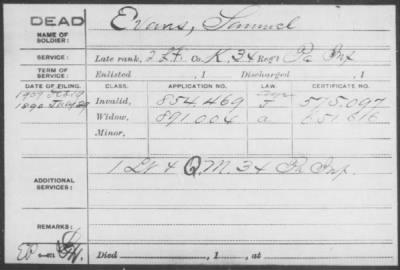 DEAD
NAME OF SOLDIER: Evans, Samuel
SERVICE: Late rank, 2 Lt. Co. K, 34 Reg't Pa Inf
TERM OF SERVICE: Enlisted , 1 Discharged , 1
DATE OF FILING. CLASS. APPLICATION NO. LAW. CERTIFICATE NO.
Invalid, 854.469 J 575.097
1890 Widow, 891.004 a 651616
Minor,
ADDITIONAL SERVICES: 1 Lt & Q.M. 34 Pa Inf.
REMARKS:
Died , 1 , at